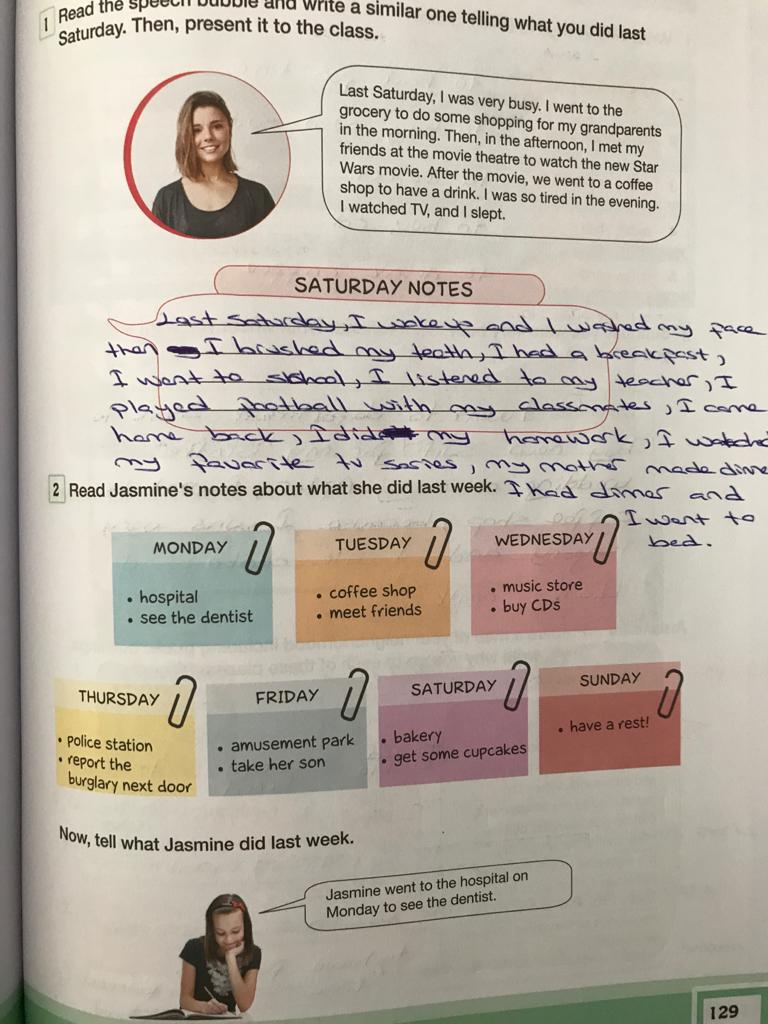 1 Read the speech bubble and write a similar one telling what you did last
Saturday. Then, present it to the class.
Last Saturday, I was very busy. I went to the
grocery to do some shopping for my grandparents
in the morning. Then, in the afternoon, I met my
friends at the movie theatre to watch the new Star
Wars movie. After the movie, we went to a coffee
shop to have a drink. I was so tired in the evening.
I watched TV, and I slept.
SATURDAY NOTES
Last Saturday, I woke up and I washed my face
then I brushed my teeth, I had a breakfast,
I went to school, I listened to my teacher, I
played football with my classmates, I came
home back, I did my homework, I watched
my favorite tv series, my mother made dinne
I had dinner and
I went to
bed.
2 Read Jasmine's notes about what she did last week.
MONDAY
• hospital
• see the dentist
TUESDAY
• coffee shop
• meet friends
WEDNESDAY
• music store
• buy CDs
THURSDAY
• police station
• report the
burglary next door
FRIDAY
• amusement park
• take her son
SATURDAY
• bakery
• get some cupcakes
SUNDAY
• have a rest!
Now, tell what Jasmine did last week.
Jasmine went to the hospital on
Monday to see the dentist.
129